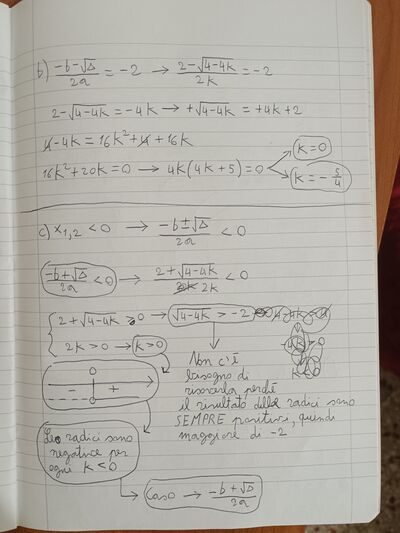 b) (-b-√Δ)/2a = -2 → (2-√4-4k)/2k = -2
2-√4-4k = -4k → +√4-4k = +4k+2
4-4k = 16k²+4+16k
16k²+20k=0 → 4k(4k+5)=0 k=0
k=-5/4
c) x1,2 < 0 → (-b±√Δ)/2a < 0
(-b+√Δ)/2a < 0 → (2+√4-4k)/2k < 0
2+√4-4k ≥ 0 → √4-4k > -2
2k>0 → k>0
0
- +
Non c'è
bisogno di
risolverla perché
il risultato delle radici sono
SEMPRE positivi, quindi
maggiore di -2
Le radici sono
negative per
ogni k<0
Caso → (-b+√Δ)/2a